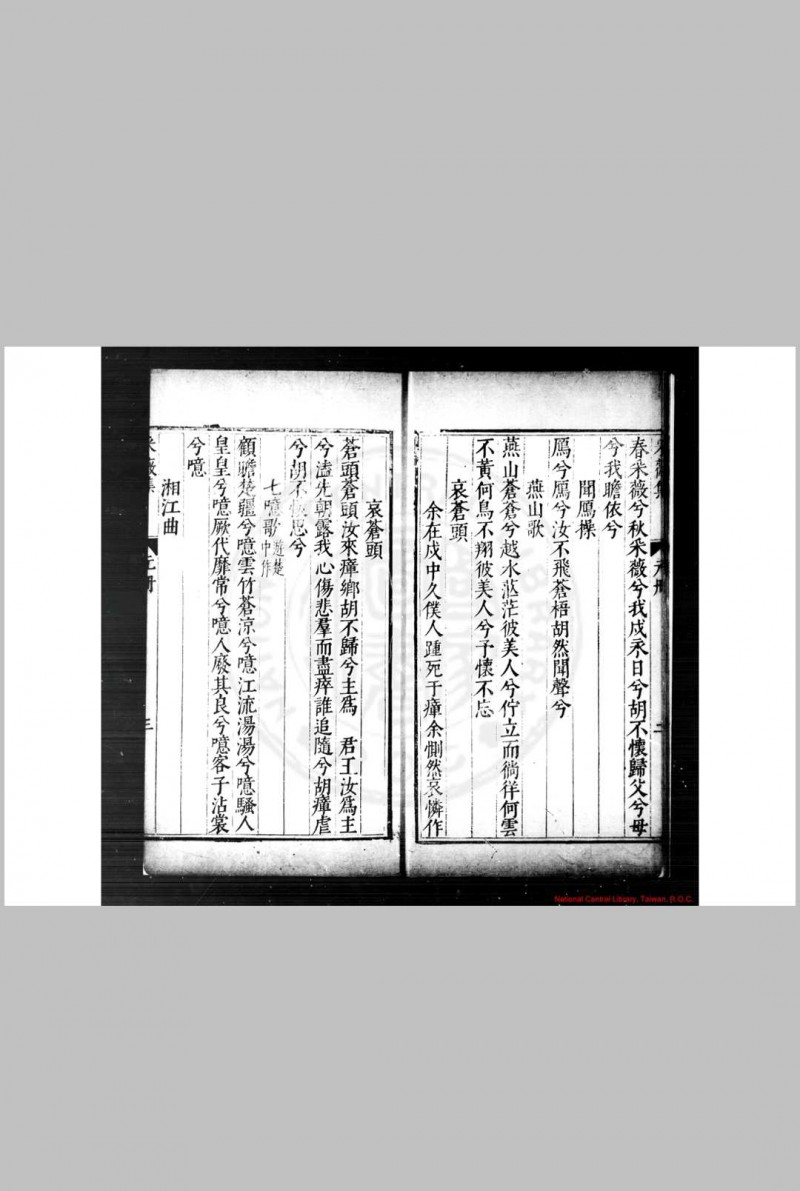 采薇集
元册
二
春采薇兮秋采薇兮我戍永日兮胡不懷歸父兮母
兮我瞻依兮
聞鴈操
鴈兮鴈兮汝不飛蒼梧胡然聞聲兮
燕山歌
燕山蒼蒼兮越水茫茫彼美人兮佇立而徜徉何雲
不黃何鳥不翔彼美人兮予懷不忘
哀蒼頭
余在戍中久僕人踵死于瘴余惻然哀憐作
哀蒼頭
蒼頭蒼頭汝來瘴鄉胡不歸兮主爲 君王汝爲主
兮溘先朝露我心傷悲羣而盡瘁誰追隨兮胡瘴虐
兮胡不 思兮
七噫歌遊楚中作
顧瞻楚疆兮噫雲竹蒼涼兮噫江流湯湯兮噫騷人
皇皇兮噫厥代靡常兮噫人廢其良兮噫客子沾裳
兮噫
湘江曲
采薇集
元册
三
National Central Library, Taiwan, R.O.C.